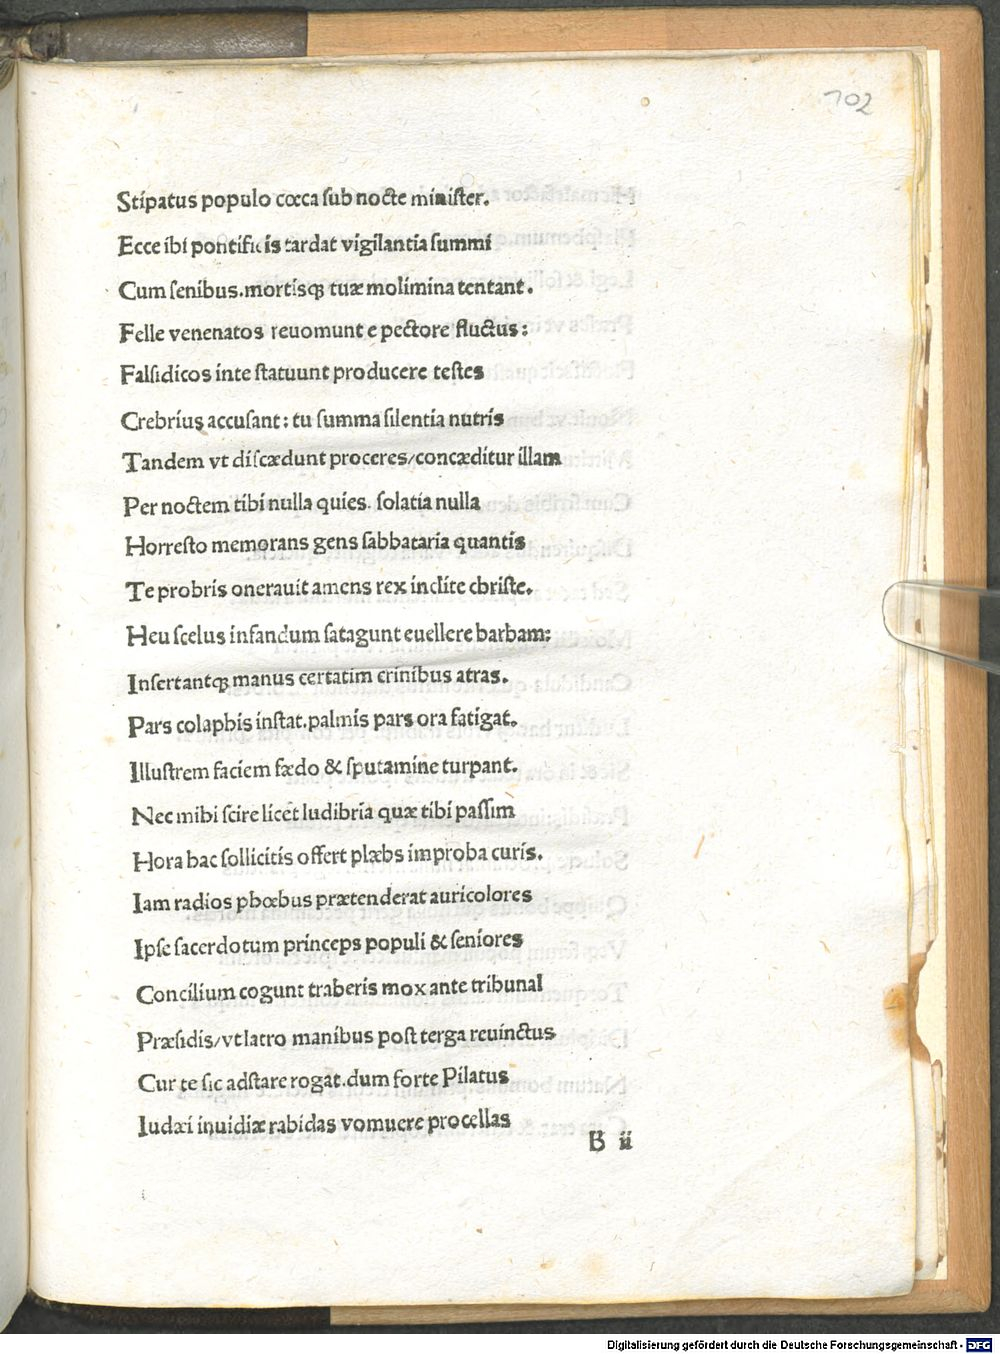 702
Stipatus populo cœca sub nocte minister.
Ecce ibi pontificis tardat vigilantia summi
Cum senibus. mortisqȝ tuæ molimina tentant.
Felle venenatos reuomunt e pectore fluctus:
Falsidicos inte statuunt producere testes
Crebriusꝫ accusant: tu summa silentia nutris
Tandem vt discædunt proceres/concæditur illam
Per noctem tibi nulla quies. solatia nulla
Horresto memorans gens sabbataria quantis
Te probris onerauit amens rex inclite christe.
Heu scelus infandum satagunt euellere barbam:
Insertantqȝ manus certatim crinibus atras.
Pars colaphis instat. palmis pars ora fatigat.
Illustrem faciem fædo & sputamine turpant.
Nec mihi scire licet ludibria quæ tibi passim
Hora hac sollicitis offert plæbs improba curis.
Iam radios phœbus prætenderat auricolores
Ipse sacerdotum princeps populi & seniores
Concilium cogunt traheris mox ante tribunal
Præsidis/vt latro manibus post terga reuinctus
Cur te sic adstare rogat. dum forte Pilatus
Iudæi inuidiæ rabidas vomuere procellas
B ii
Digitalisierung gefördert durch die Deutsche Forschungsgemeinschaft - DFG